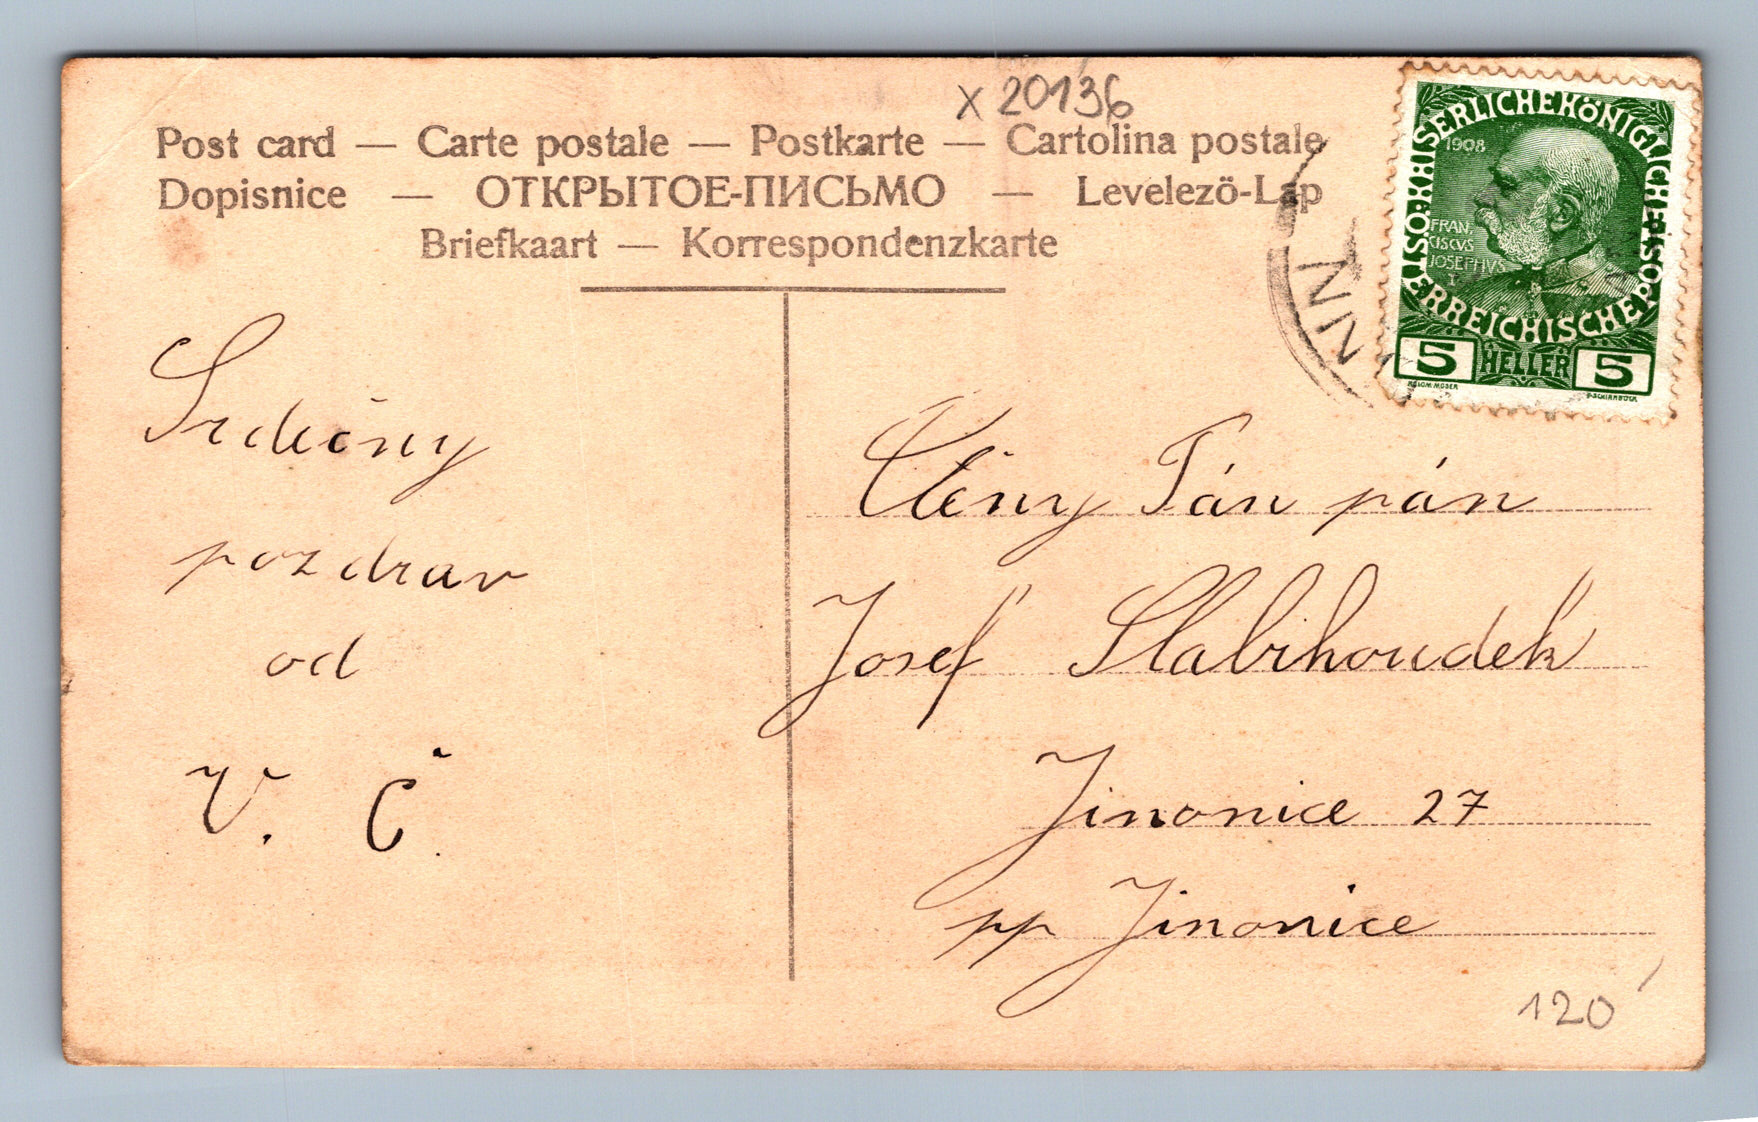 x 20136
Post card — Carte postale — Postkarte — Cartolina postale
Dopisnice — ОТКРЫТОЕ-ПИСЬМО — Levelezö-Lap
Briefkaart — Korrespondenzkarte
KAISERLICHEKÖNIGLICHEPOST
ÖSTERREICHISCHE
1908
FRAN.
CISCVS
IOSEPHVS
I
5 HELLER 5
KOLOM. MOSER
F. SCHIRNBÖCK
NIN
Srdečný
pozdrav
od
V. Č.
Ctěný Pán pán
Josef Slabihoudek
Jinonice 27
pp Jinonice
120